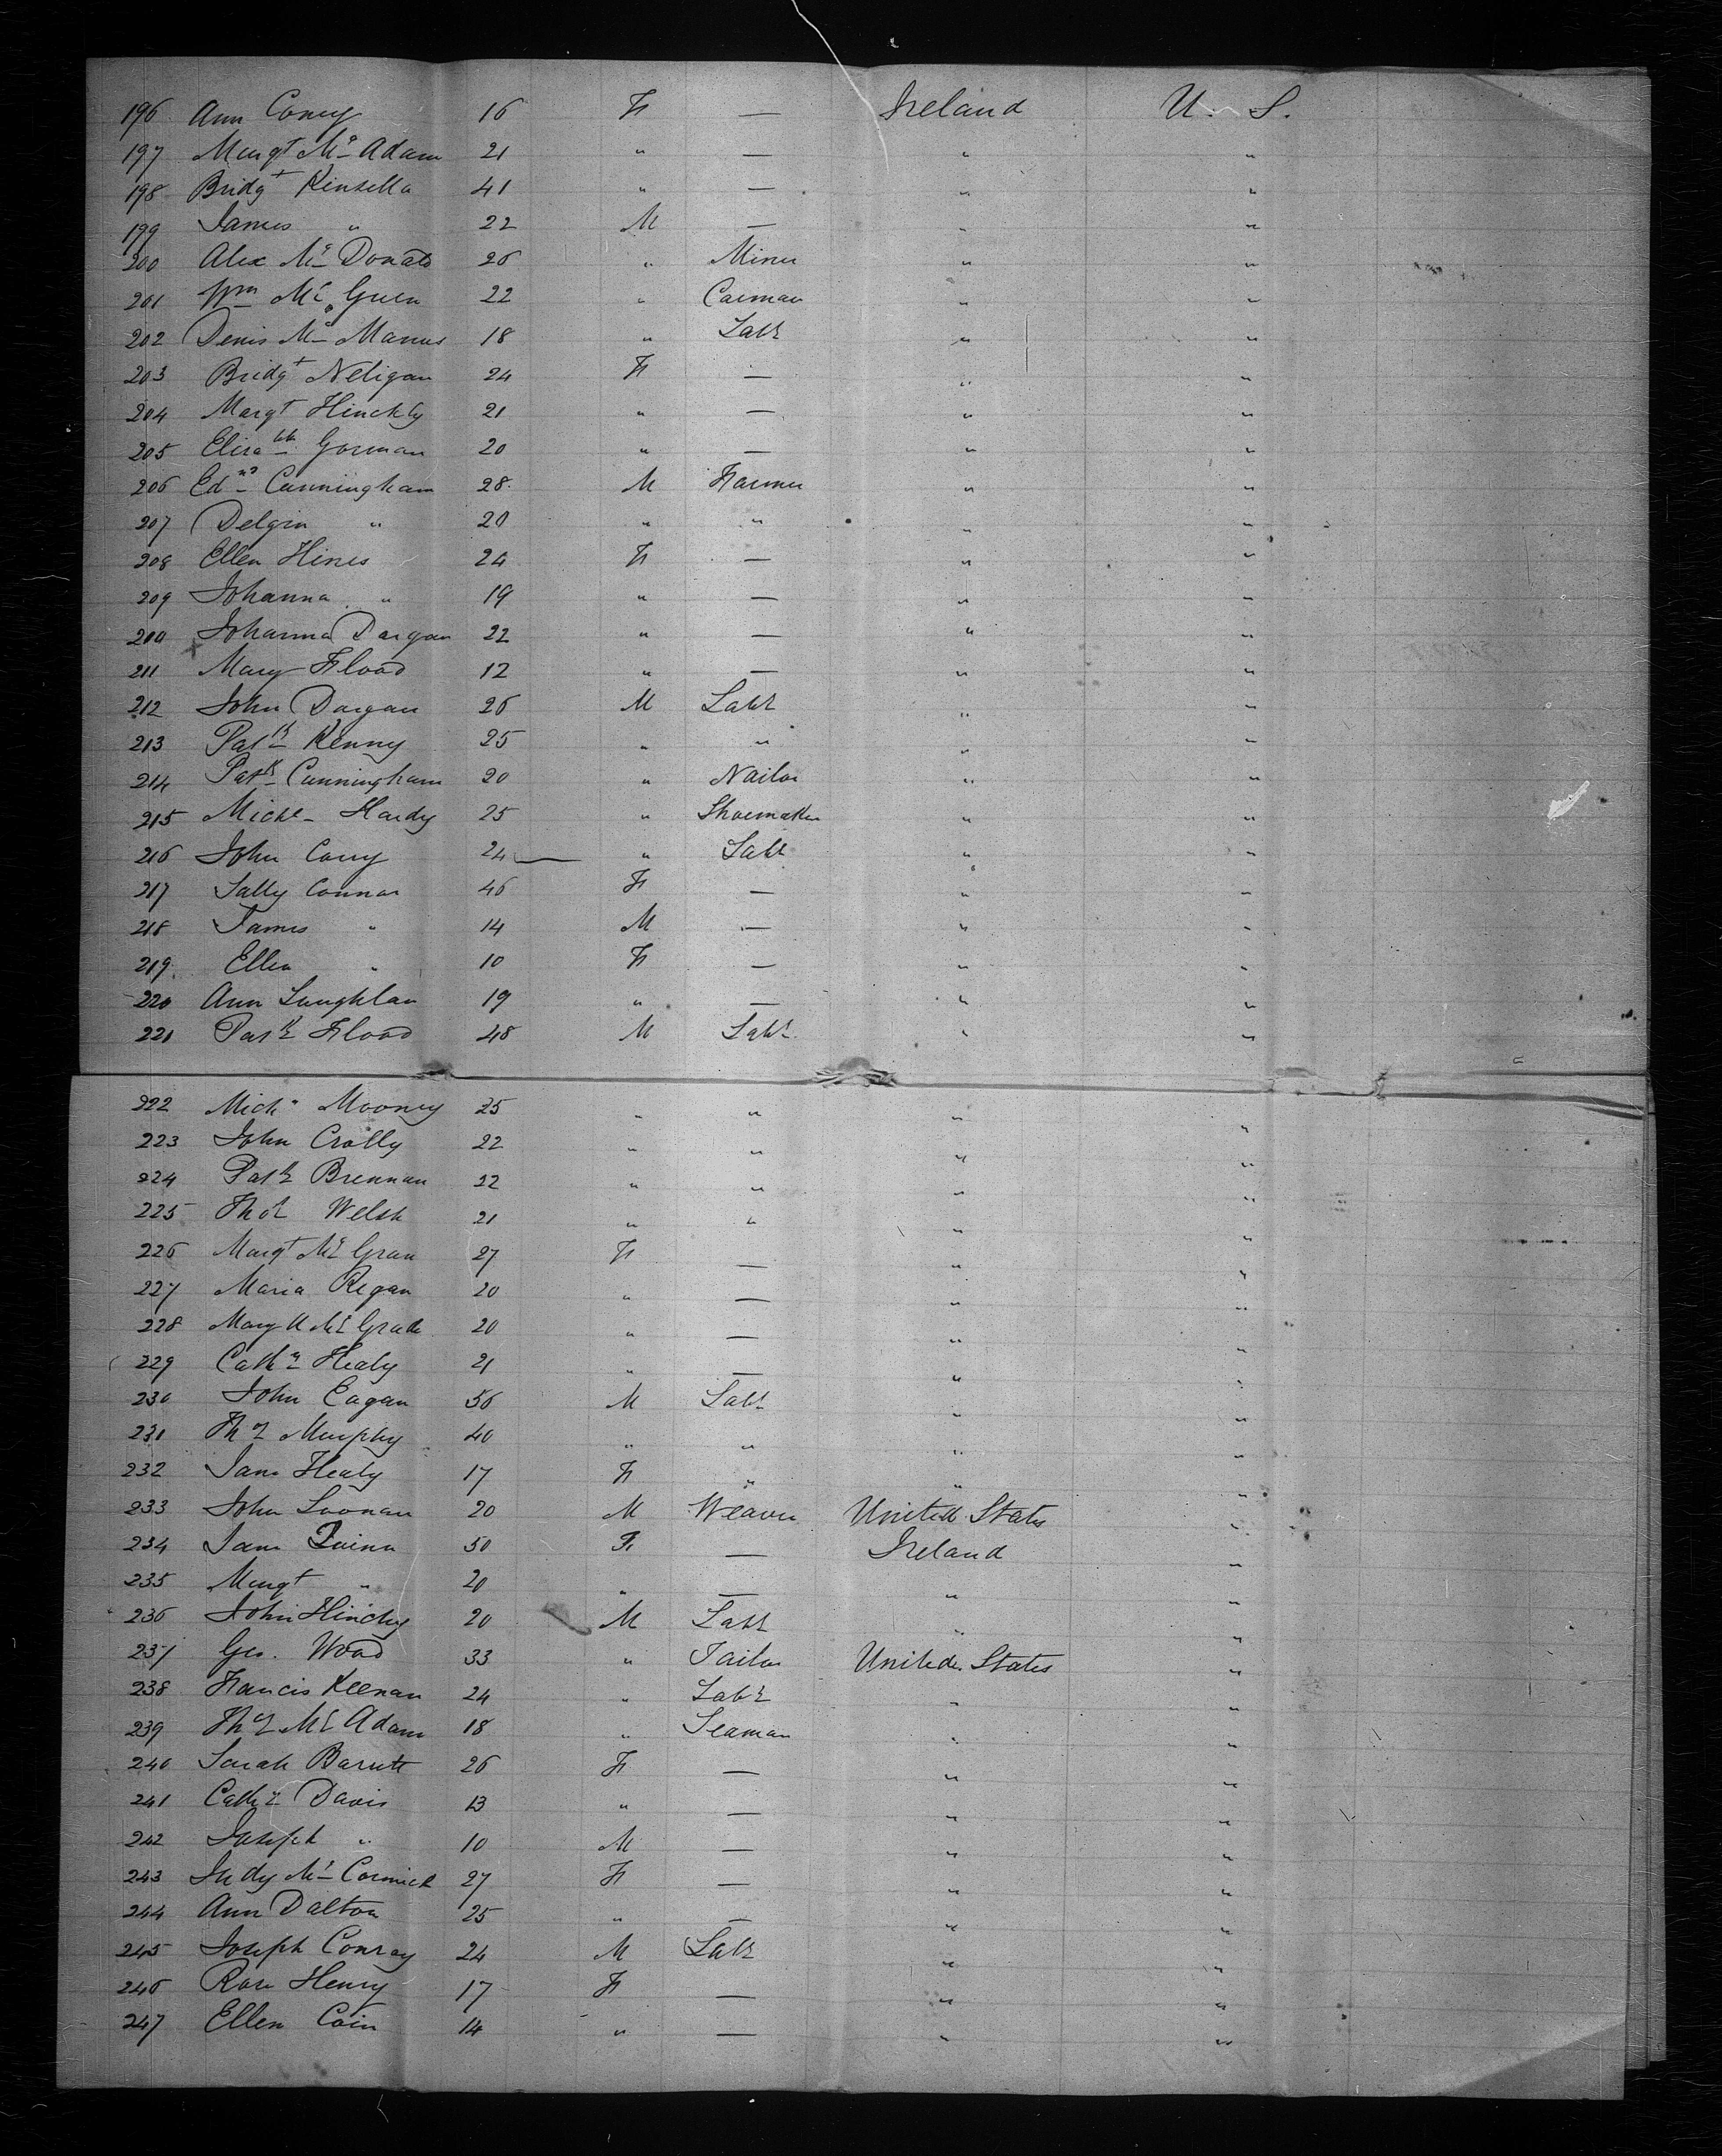 196 Ann Coney 16 F — Ireland U. S.
197 Margt Mc Adam 21 " — " "
198 Bridgt Kinsella 41 " — " "
199 James " 22 M — " "
200 Alex Mc Donald 26 " Miner " "
201 Wm Mc Guen 22 " Carman " "
202 Denis Mc Manus 18 " Labr " "
203 Bridgt Neligan 24 F — " "
204 Margt Hinchly 21 " — " "
205 Elizath Gorman 20 " — " "
206 Edwd Cunningham 28 M Farmer " "
207 Delgin " 20 " " " "
208 Ellen Hines 24 F — " "
209 Johanna " 19 " — " "
210 Johanna Dargan 22 " — " "
211 Mary Flood 12 " — " "
212 John Dargan 26 M Labr " "
213 Patk Kenny 25 " " " "
214 Patk Cunningham 20 " Nailor " "
215 Michl Hardy 25 " Shoemaker " "
216 John Corry 24 " Labr " "
217 Sally Connor 46 F — " "
218 James " 14 M — " "
219 Ellen " 10 F — " "
220 Ann Laughlan 19 " — " "
221 Patk Flood 48 M Labr " "
222 Michl Mooney 25 " " " "
223 John Crolly 22 " " " "
224 Patk Brennan 22 " " " "
225 Thos Welsh 21 " " " "
226 Margt Mc Gran 27 F — " "
227 Maria Regan 20 " — " "
228 Mary A Mc Grath 20 " — " "
229 Cathe Healy 21 " — " "
230 John Eagan 56 M Labr " "
231 Thos Murphy 40 " " " "
232 Jane Healy 17 F " " "
233 John Loonan 20 M Weaver United States "
234 Jane Quinn 50 F — Ireland "
235 Margt " 20 " — " "
236 John Hinchy 20 M Labr " "
237 Geo. Wood 33 " Tailor United States "
238 Francis Keenan 24 " Labr " "
239 Thos Mc Adam 18 " Seaman " "
240 Sarah Barrett 26 F — " "
241 Cathe Davis 13 " — " "
242 Joseph " 10 M — " "
243 Judy Mc Cormick 27 F — " "
244 Ann Dalton 25 " — " "
245 Joseph Conroy 24 M Labr " "
246 Rose Henry 17 F — " "
247 Ellen Cain 14 " — " "